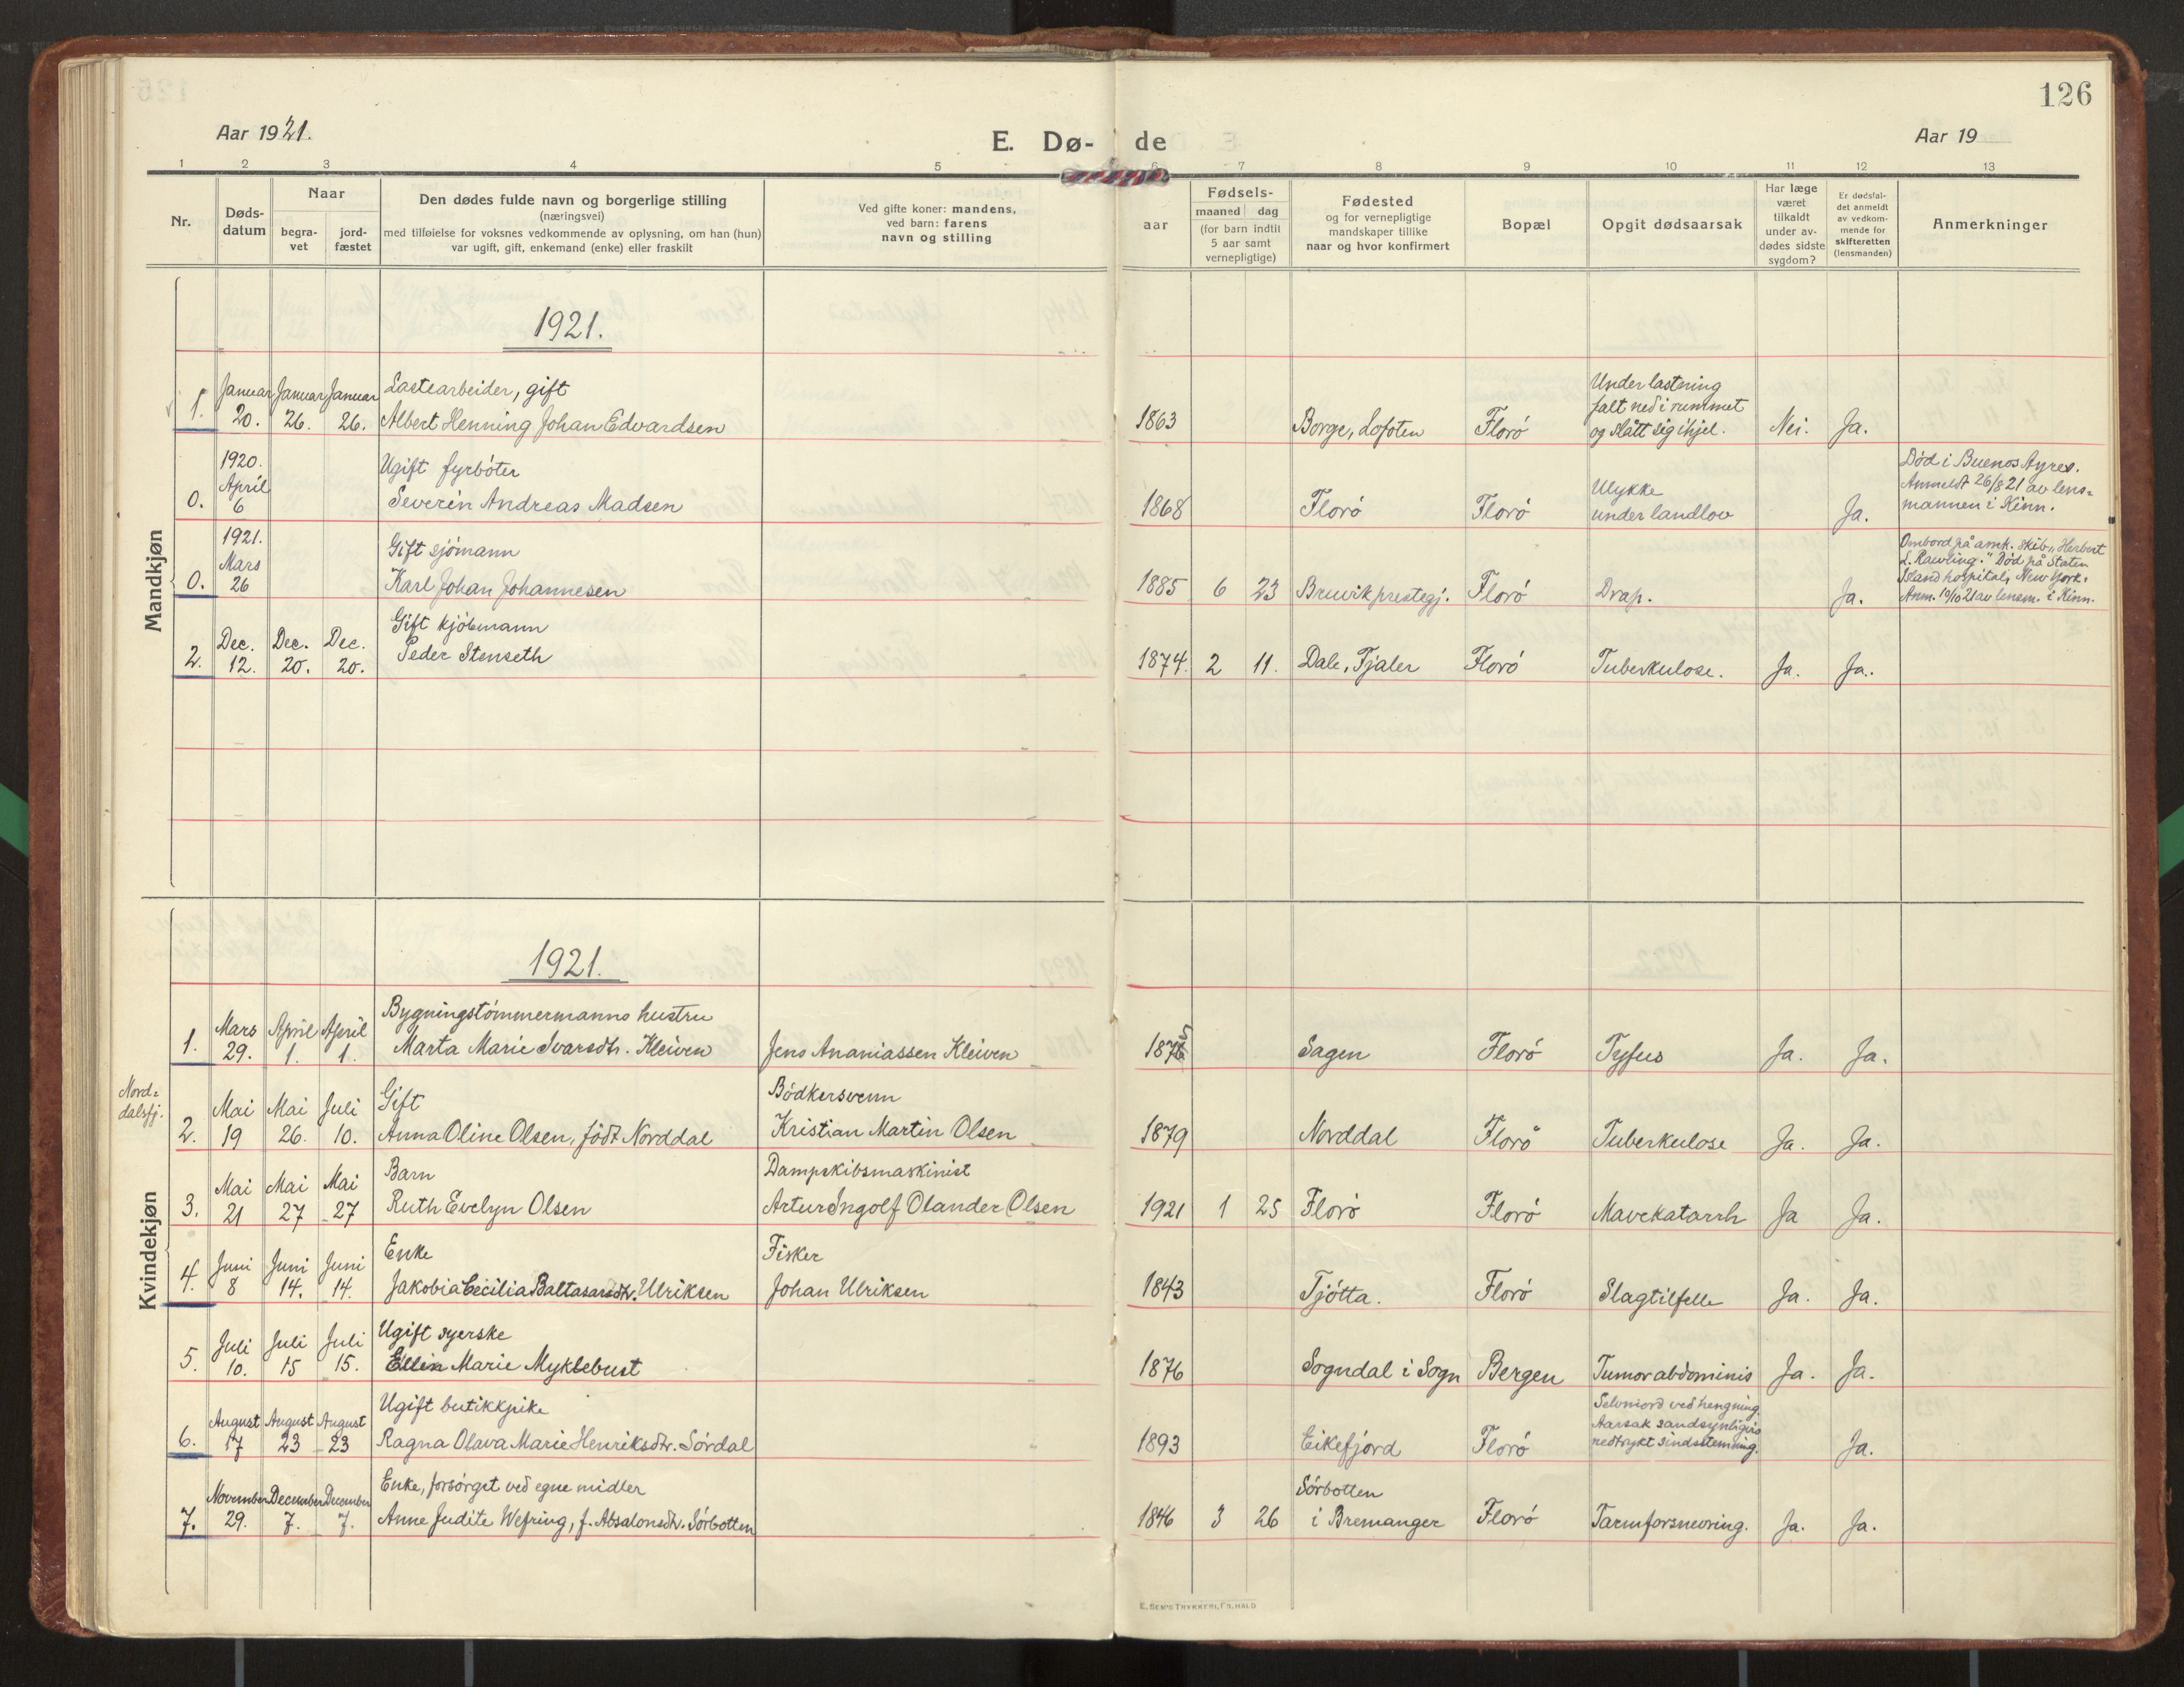 126
Aar 1921.
E. Dø-
de
Aar 19
1 2 3 4 5 6 7 8 9 10 11 12 13
Nr.
Døds-
datum
Naar
begra-
vet
jord-
fæstet
Den dødes fulde navn og borgerlige stilling
(næringsvei)
med tilføielse for voksnes vedkommende av oplysning, om han (hun)
var ugift, gift, enkemand (enke) eller fraskilt
Ved gifte koner: mandens,
ved barn: farens
navn og stilling
aar
Fødsels-
maaned dag
(for barn indtil
5 aar samt
vernepligtige)
Fødested
og for vernepligtige
mandskaper tillike
naar og hvor konfirmert
Bopæl
Opgit dødsaarsak
Har læge
været
tilkaldt
under av-
dødes sidste
sygdom?
Er dødsfal-
det anmeldt
av vedkom-
mende for
skifteretten
(lensmanden)
Anmerkninger
Mandkjøn
1921.
1.
Januar Januar Januar
20. 26. 26.
Lastearbeider, gift
Albert Henning Johan Edvardsen
1863
Borge, Lofoten
Florö
Under lastning
falt ned i rummet
og slått sig ihjel.
Nei. Ja.
0.
1920.
April
6
Ugift fyrböter
Severin Andreas Madsen
1868
Florö
Florö
Ulykke
under landlov
Ja.
Död i Buenos Ayres.
Anmeldt 26/8 21 av lens-
mannen i Kinn.
0.
1921.
Mars
26
Gift sjömann
Karl Johan Johannesen
1885 6 23
Bruvik prestegj.
Florö
Drap.
Ja.
Ombord på amk. skib „Herbert
L. Rawling." Död på Staten
Island hospital, New York.
Anm. 10/10 21 av lensm. i Kinn.
2.
Dec. Dec. Dec.
12. 20. 20.
Gift kjöbmann
Peder Stenseth
1874. 2 11.
Dale, Fjaler
Florö
Tuberkulose.
Ja. Ja.
Kvindekjøn
1921.
1.
Mars April April
29. 1. 1.
Bygningstömmermanns hustru
Marta Marie Ivarsdtr. Kleiven
Jens Ananiassen Kleiven
1875
Sagen
Florö
Tyfus
Ja. Ja.
Nord-
dalsfj.
2.
Mai Mai Juli
19 26. 10.
Gift
Anna Oline Olsen, födt Norddal
Bödkersvenn
Kristian Martin Olsen
1879
Norddal
Florö
Tuberkulose
Ja. Ja.
3.
Mai Mai Mai
21 27 27
Barn
Ruth Evelyn Olsen
Dampskibsmaskinist
Artur Ingolf Olander Olsen
1921 1 25
Florö
Florö
Mavekatarrh
Ja Ja.
4.
Juni Juni Juni
8 14. 14.
Enke
Jakobia Cecilia Baltasarsdtr. Ulriksen
Fisker
Johan Ulriksen
1843
Tjötta.
Florö
Slagtilfelle
Ja. Ja.
5.
Juli Juli Juli
10. 15 15.
Ugift syerske
Ellen Marie Myklebust
1876
Sogndal i Sogn
Bergen
Tumor abdominis
Ja. Ja.
6.
August August August
17 23 23
Ugift butikkpike
Ragna Olava Marie Henriksdtr. Sördal
1893
Eikefjord
Florö
Selvmord ved hengning.
Aarsak sandsynligvis
nedtrykt sindsstemning.
Ja.
7.
November December December
29. 7. 7.
Enke, forsörget ved egne midler
Anne Judite Wefring, f. Absalonsdtr. Sörbotten
1846 3 26
Sörbotten
i Bremanger
Florö
Tarmforsnevring.
Ja. Ja.
E. SEM'S TRYKKERI, FR.HALD